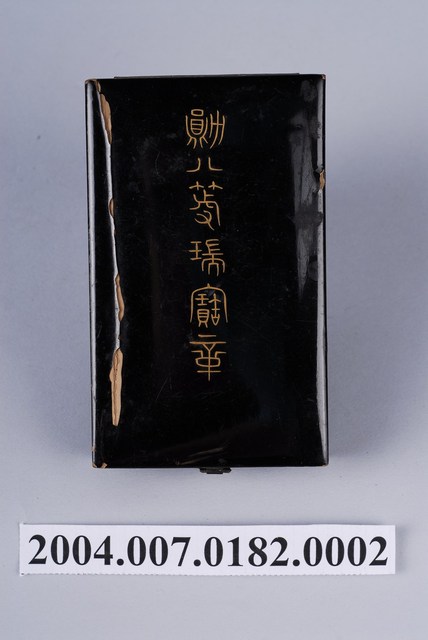 勲八等瑞寶章
2004.007.0182.0002